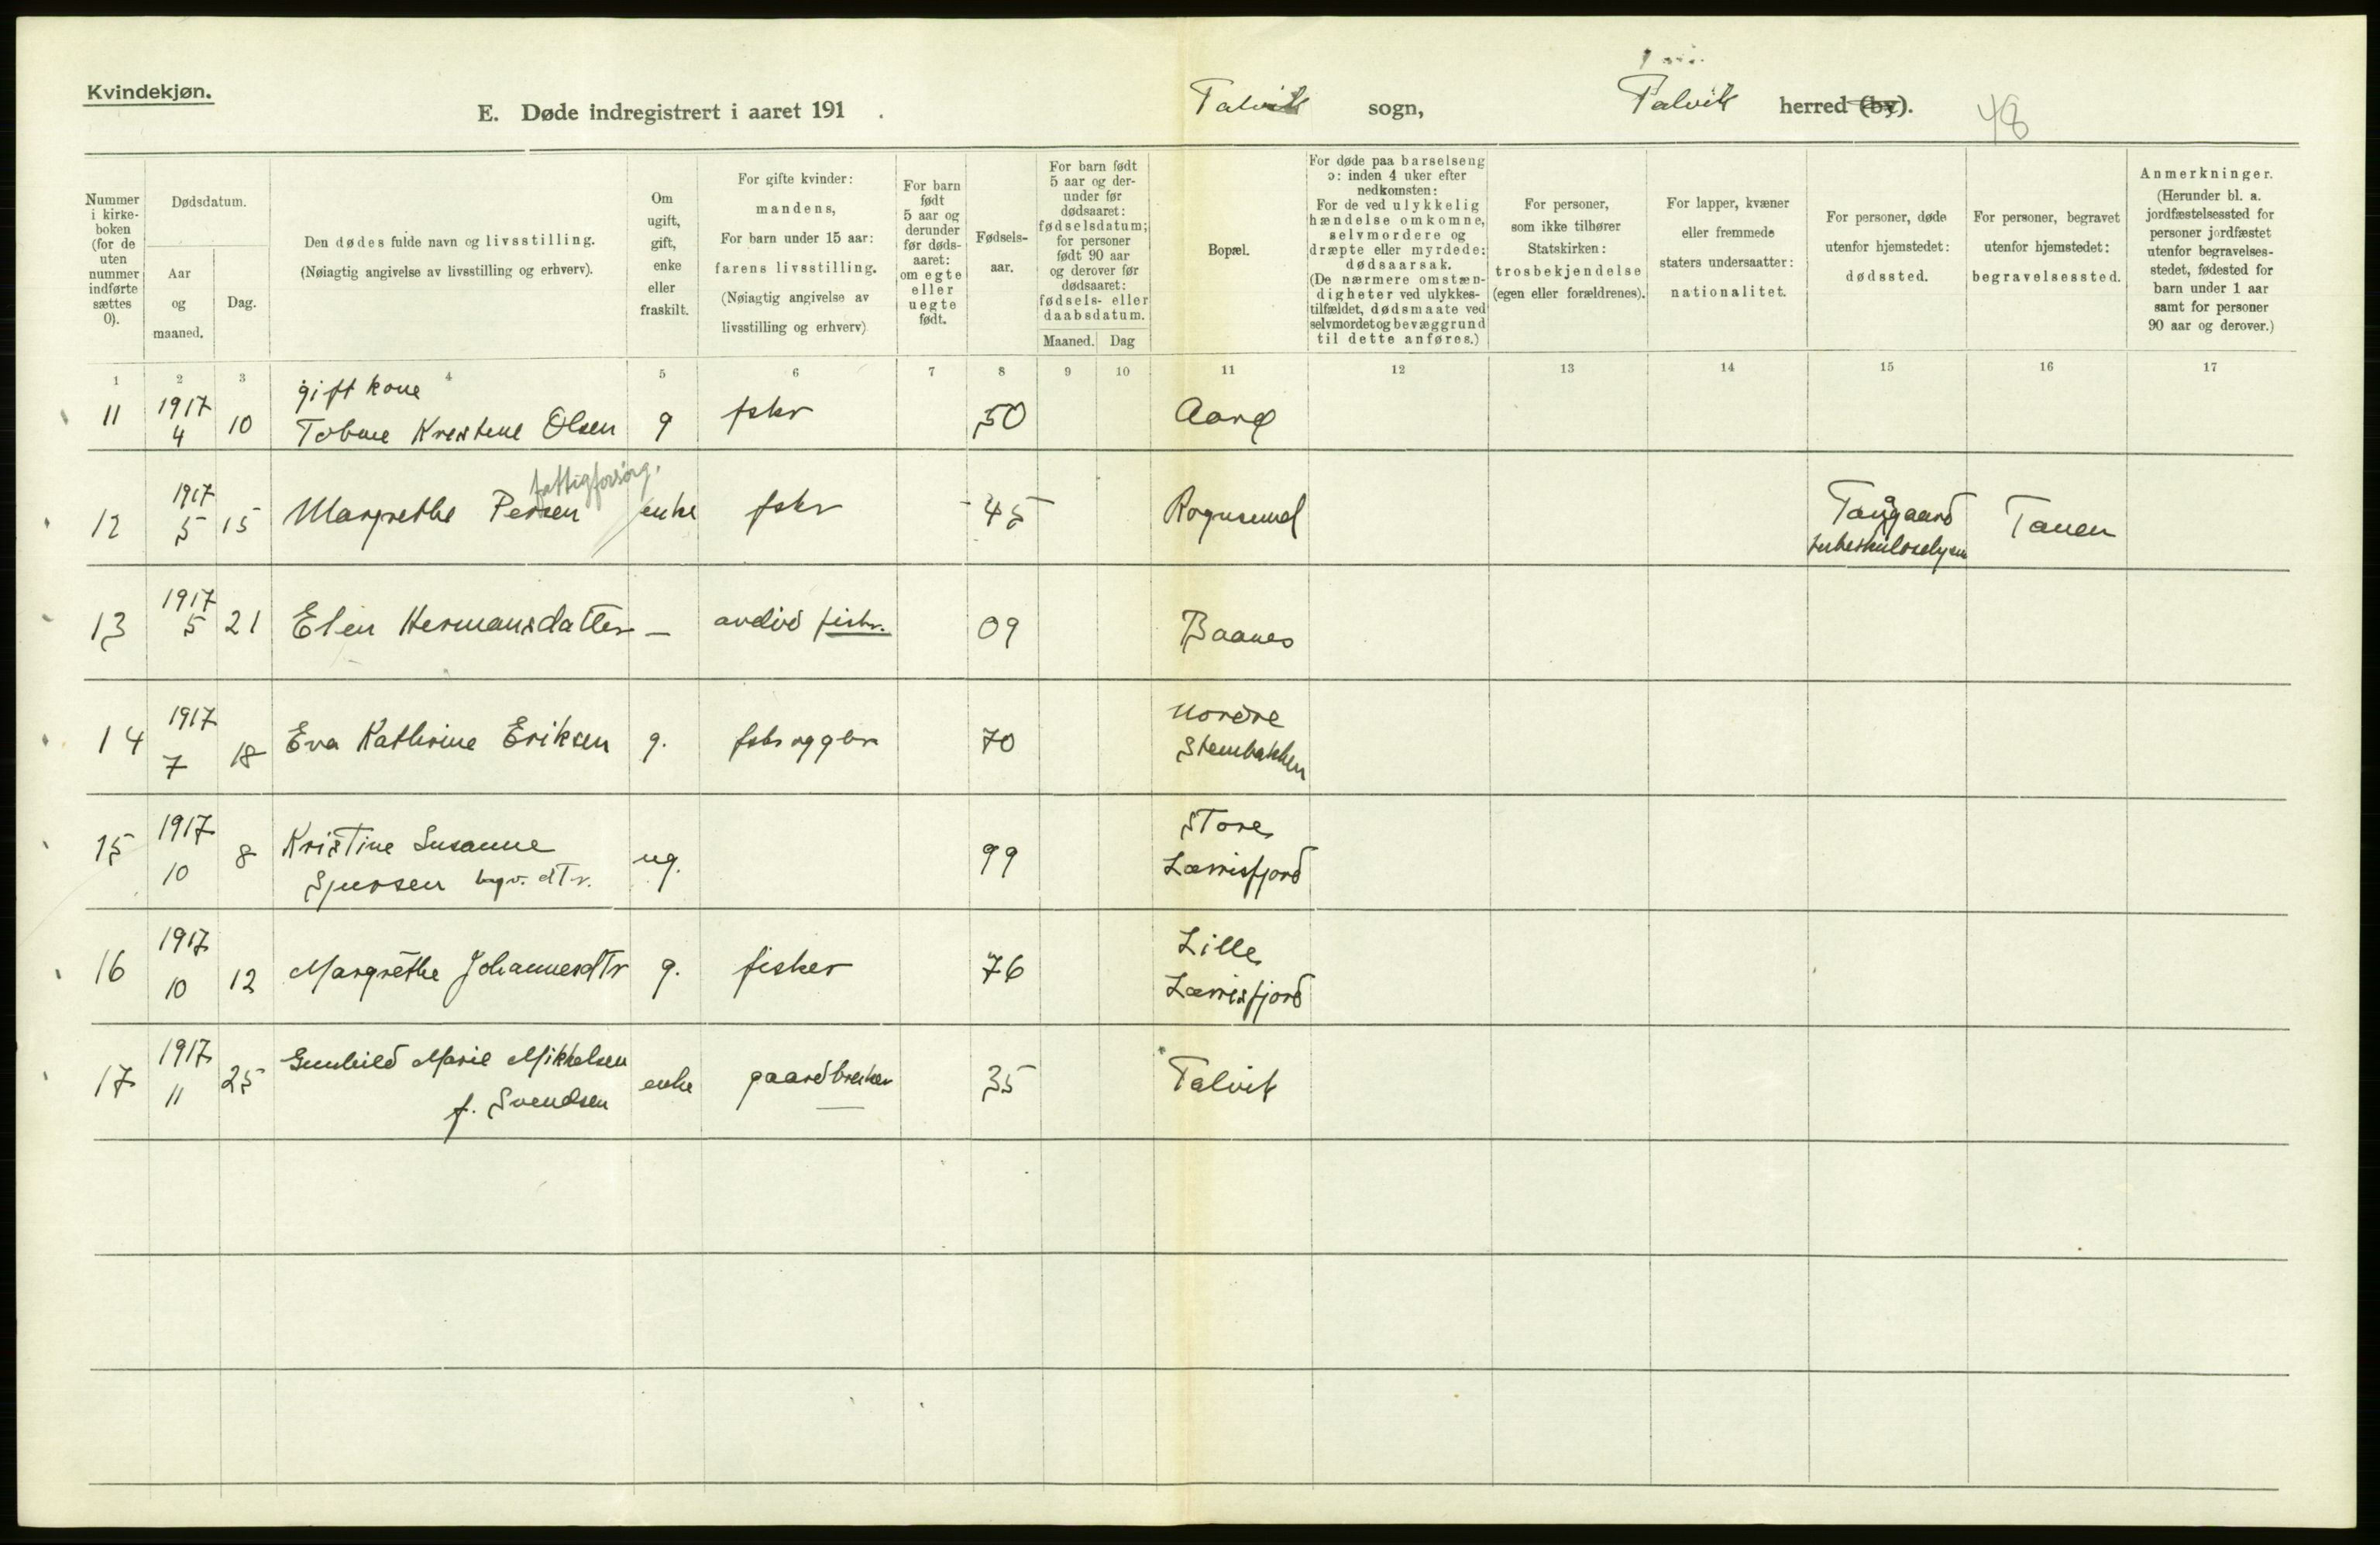 Kvindekjøn.
E. Døde indregistrert i aaret 191 .
Talvik sogn,
Talvik herred (by).
48
Nummer i kirke-boken (for de uten nummer indførte sættes 0).
Dødsdatum.
Aar og maaned.
Dag.
Den dødes fulde navn og livsstilling.
(Nøiagtig angivelse av livsstilling og erhverv).
Om ugift, gift, enke eller fraskilt.
For gifte kvinder:
mandens,
For barn under 15 aar:
farens livsstilling.
(Nøiagtig angivelse av
livsstilling og erhverv)
For barn født 5 aar og derunder før døds-aaret: om egte eller uegte født.
Fødsels-aar.
For barn født 5 aar og der-under før dødsaaret: fødselsdatum; for personer født 90 aar og derover før dødsaaret: fødsels- eller daabsdatum.
Maaned. Dag
Bopæl.
For døde paa barselseng
ɔ: inden 4 uker efter
nedkomsten:
For de ved ulykkelig
hændelse omkomne,
selvmordere og
dræpte eller myrdede:
dødsaarsak.
(De nærmere omstæn-
digheter ved ulykkes-
tilfældet, dødsmaate ved
selvmordet og bevæggrund
til dette anføres.)
For personer,
som ikke tilhører
Statskirken:
trosbekjendelse
(egen eller forældrenes).
For lapper, kvæner
eller fremmede
staters undersaatter:
nationalitet.
For personer, døde
utenfor hjemstedet:
dødssted.
For personer, begravet
utenfor hjemstedet:
begravelsessted.
Anmerkninger.
(Herunder bl. a.
jordfæstelsessted for
personer jordfæstet
utenfor begravelses-
stedet, fødested for
barn under 1 aar
samt for personer
90 aar og derover.)
1 2 3 4 5 6 7 8 9 10 11 12 13 14 15 16 17
gift kone
11 1917 4 10 Olsen g fskr 50
fattigforsørg.
12 1917 5 15 Margrethe Persen enke fskr 45 Rognsund
Tanen
13 1917 5 21 Elen Hermansdatter – avdød fiskr. 09 Baanes
14 1917 7 18 Eva Kathrine Eriksen g. 70 Nordre
15 1917 10 8 Kristine Susanne ug. 99 Store
Sjursen dtr. Lærrisfjord
16 1917 10 12 Margrethe Johannesdtr g. fisker 76 Lille
Lærrisfjord
17 1917 11 25 Gunhild Marie Mikkelsen enke gaardbruker 35 Talvik
f. Svendsen